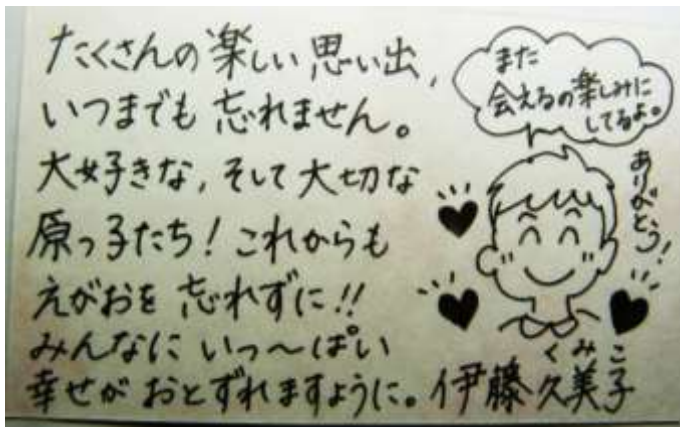 たくさんの楽しい思い出,
いつまでも忘れません。
大好きな,そして大切な
原っ子たち!これからも
えがおを忘れずに!!
みんなにいっ〜ぱい
幸せがおとずれますように。
また
会えるの楽しみに
してるよ。
ありがとう!
くみこ
伊藤久美子